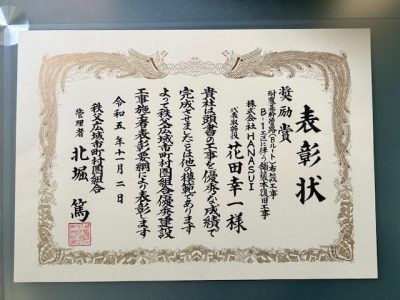 表彰状
奨励賞
耐震基幹管路(Bルート)布設工事
B-1工区に伴う舗装本復旧工事
株式会社HANASUI
代表取締役 花田幸一様
貴社は頭書の工事を優秀な成績で
完成させましたことは他の模範であります
よって秩父広域市町村圏組合優秀建設
工事施工者表彰要綱により表彰します
令和五年十一月二日
秩父広域市町村圏組合
管理者 北堀篤